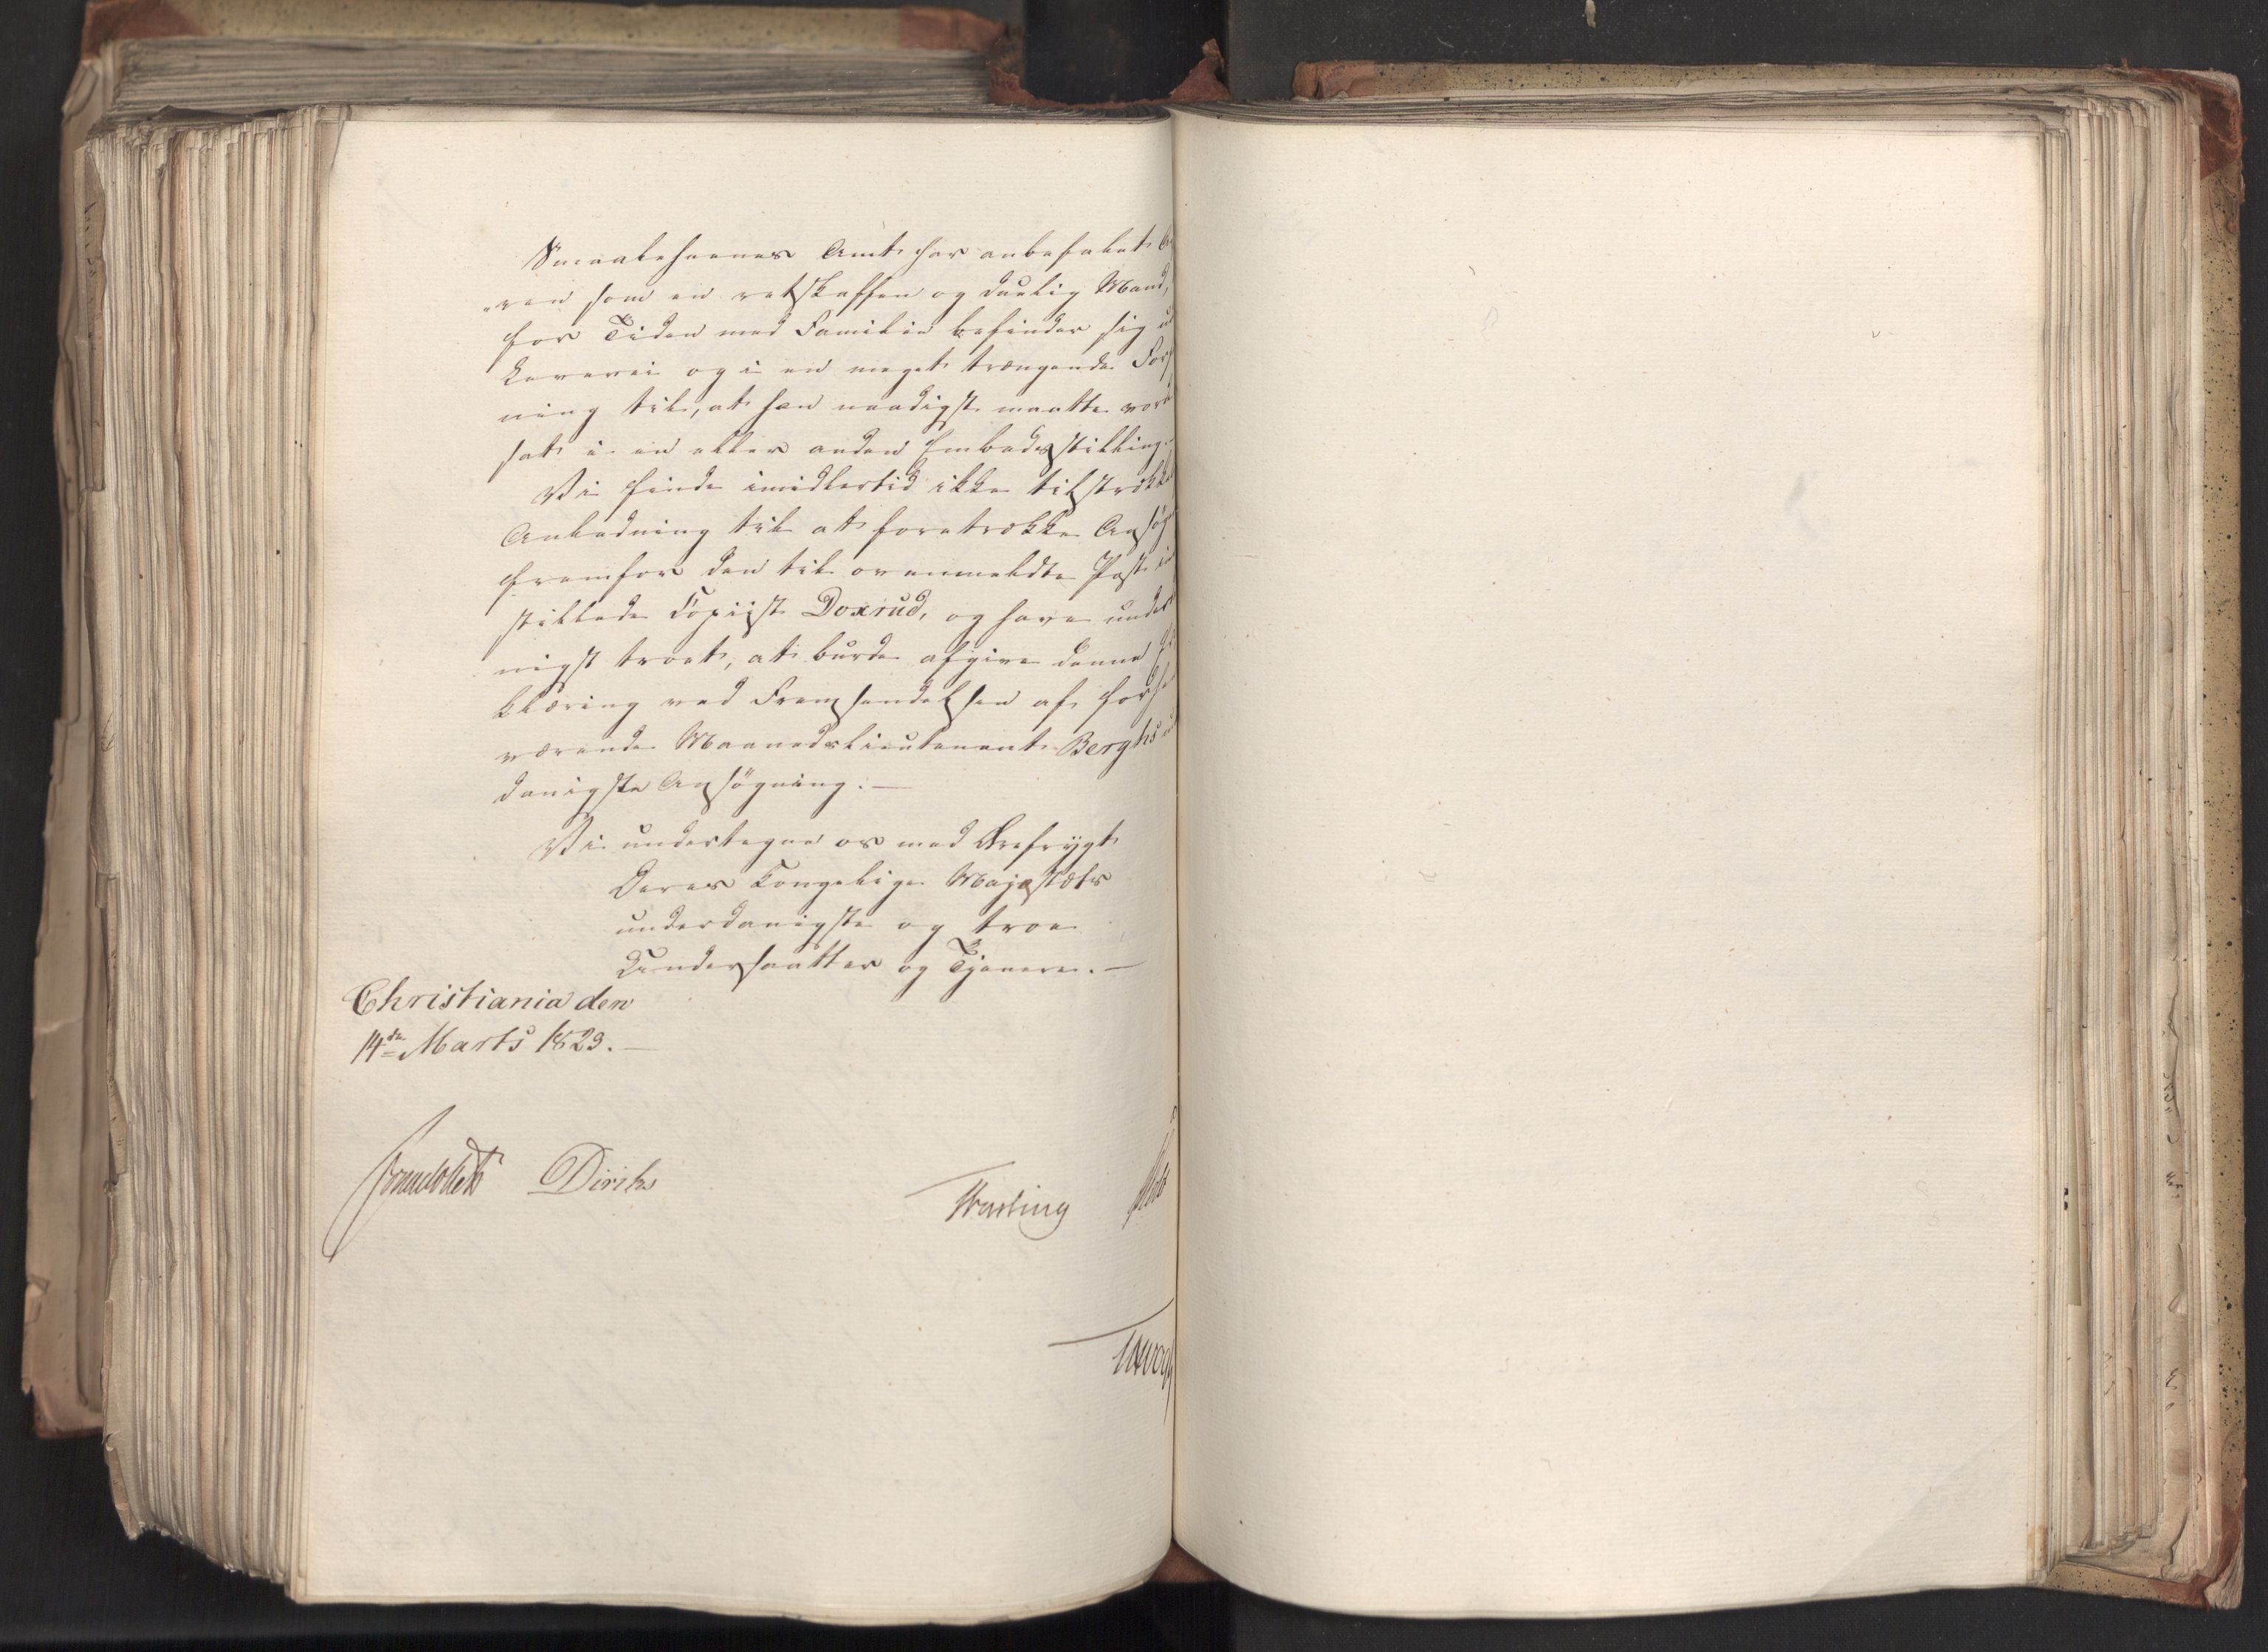 Smaalehnenes Amt har anbefalet
ren som en retskaffen og duelig Mand,
for Tiden med Familie befinder sig
levevei og i en meget trængende
ning til, at han naadigst maatte
sat i en eller anden Embedsstilling.
Vi finde imidlertid ikke tilstrækkel
Anledning til at foretrække Ansøg
fremfor den til ovenmeldte Post in
stillede Copiist Doxrud, og have under
nigst troet, at burde afgive denne
klæring ved Fremsendelsen af forhe
værende Maanedslieutenant Berghs
danigste Ansøgning. —
Vi undertegne os med Ærefrygt
Deres Kongelige Majestæts
underdanigste og troe
Undersaatter og Tjenere. —
Christiania den
14de Marts 1829. —
Diriks